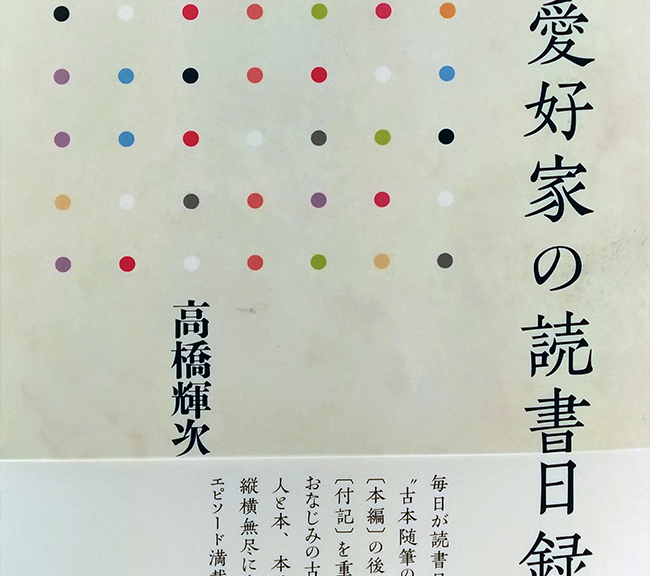 愛好家の読書日録
高橋輝次
毎日が読書日
〝古本随筆の
［本編］の後
［付記］を重
おなじみの古
人と本、本
縦横無尽に
エピソード満載